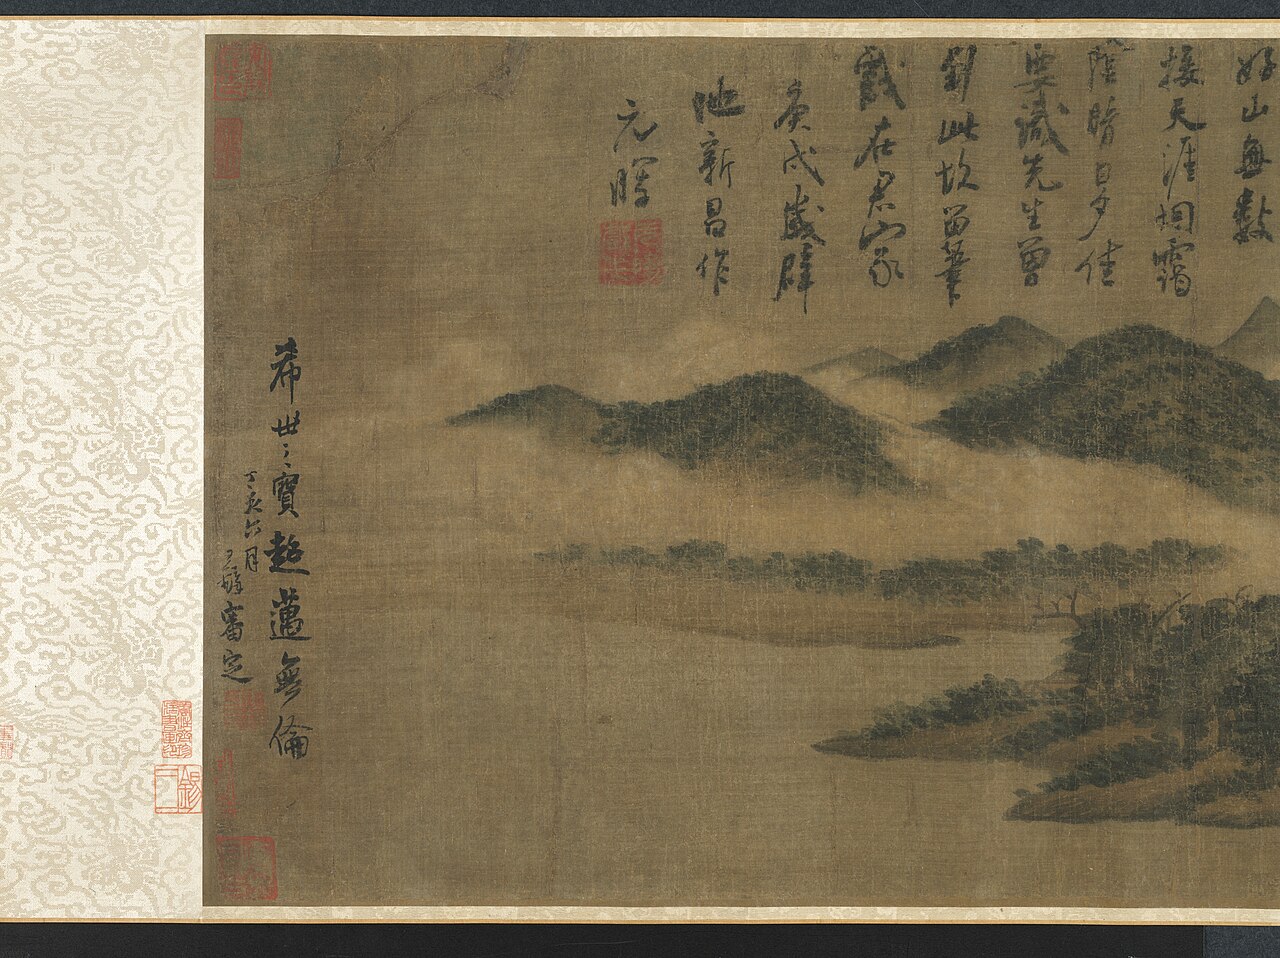 好山無數
接天涯烟靄
陰晴日夕佳
要識先生曾
到此故留筆
戲在君家
庚戌歲辟
地新昌作
元暉
希世之寶超邁無倫
丁亥六月王鐸審定